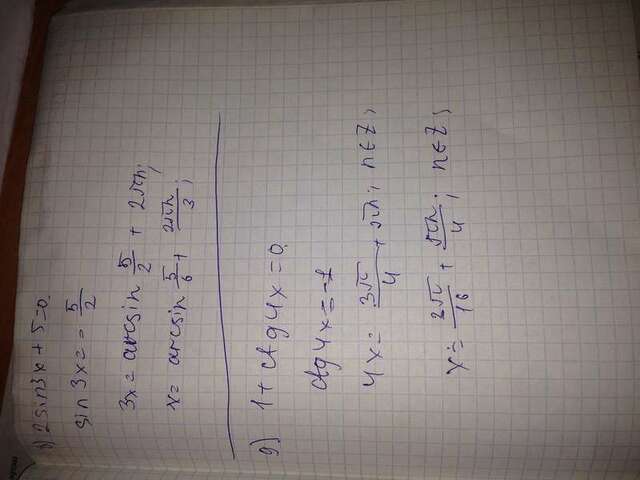 в) 2sin3x + 5 = 0.
sin3x = - 5/2
3x = arcsin 5/2 + 2πn;
x = arcsin 5/6 + 2πn/3;
д) 1 + ctg4x = 0.
ctg4x = -1
4x = 3π/4 + πn; n∈Z;
x = 3π/16 + πn/4; n∈Z;